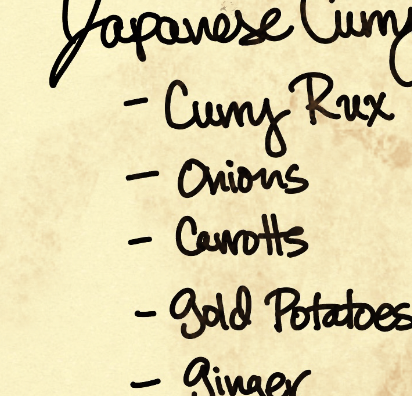 Japanese Curry
- Curry Rux
- Onions
- Carrotts
- Gold Potatoes
- Ginger